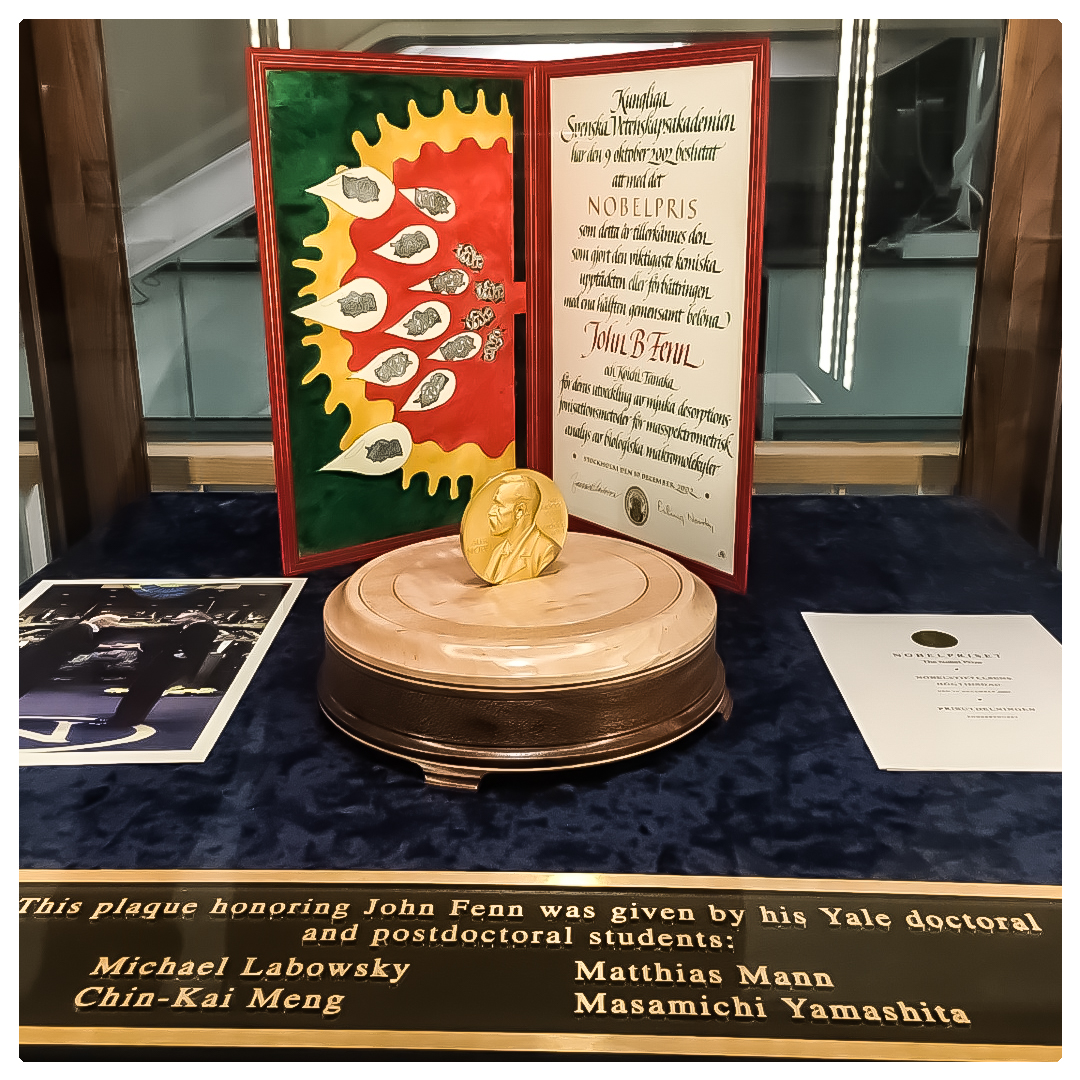 Kungliga
Svenska Vetenskapsakademien
har den 9 oktober 2002 beslutat
att med det
NOBELPRIS
som detta år tillerkännes den
som gjort den viktigaste kemiska
upptäckten eller förbättringen
med ena hälften gemensamt belöna
John B Fenn
och Koichi Tanaka
för deras utveckling av mjuka desorptions-
jonisationsmetoder för masspektrometrisk
analys av biologiska makromolekyler
• STOCKHOLM DEN 10 DECEMBER 2002 •
Erling Norrby
NOBELPRISET
The Nobel Prize
NOBELSTIFTELSENS
HÖGTIDSDAG
PRISUTDELNINGEN
This plaque honoring John Fenn was given by his Yale doctoral
and postdoctoral students:
Michael Labowsky Matthias Mann
Chin-Kai Meng Masamichi Yamashita